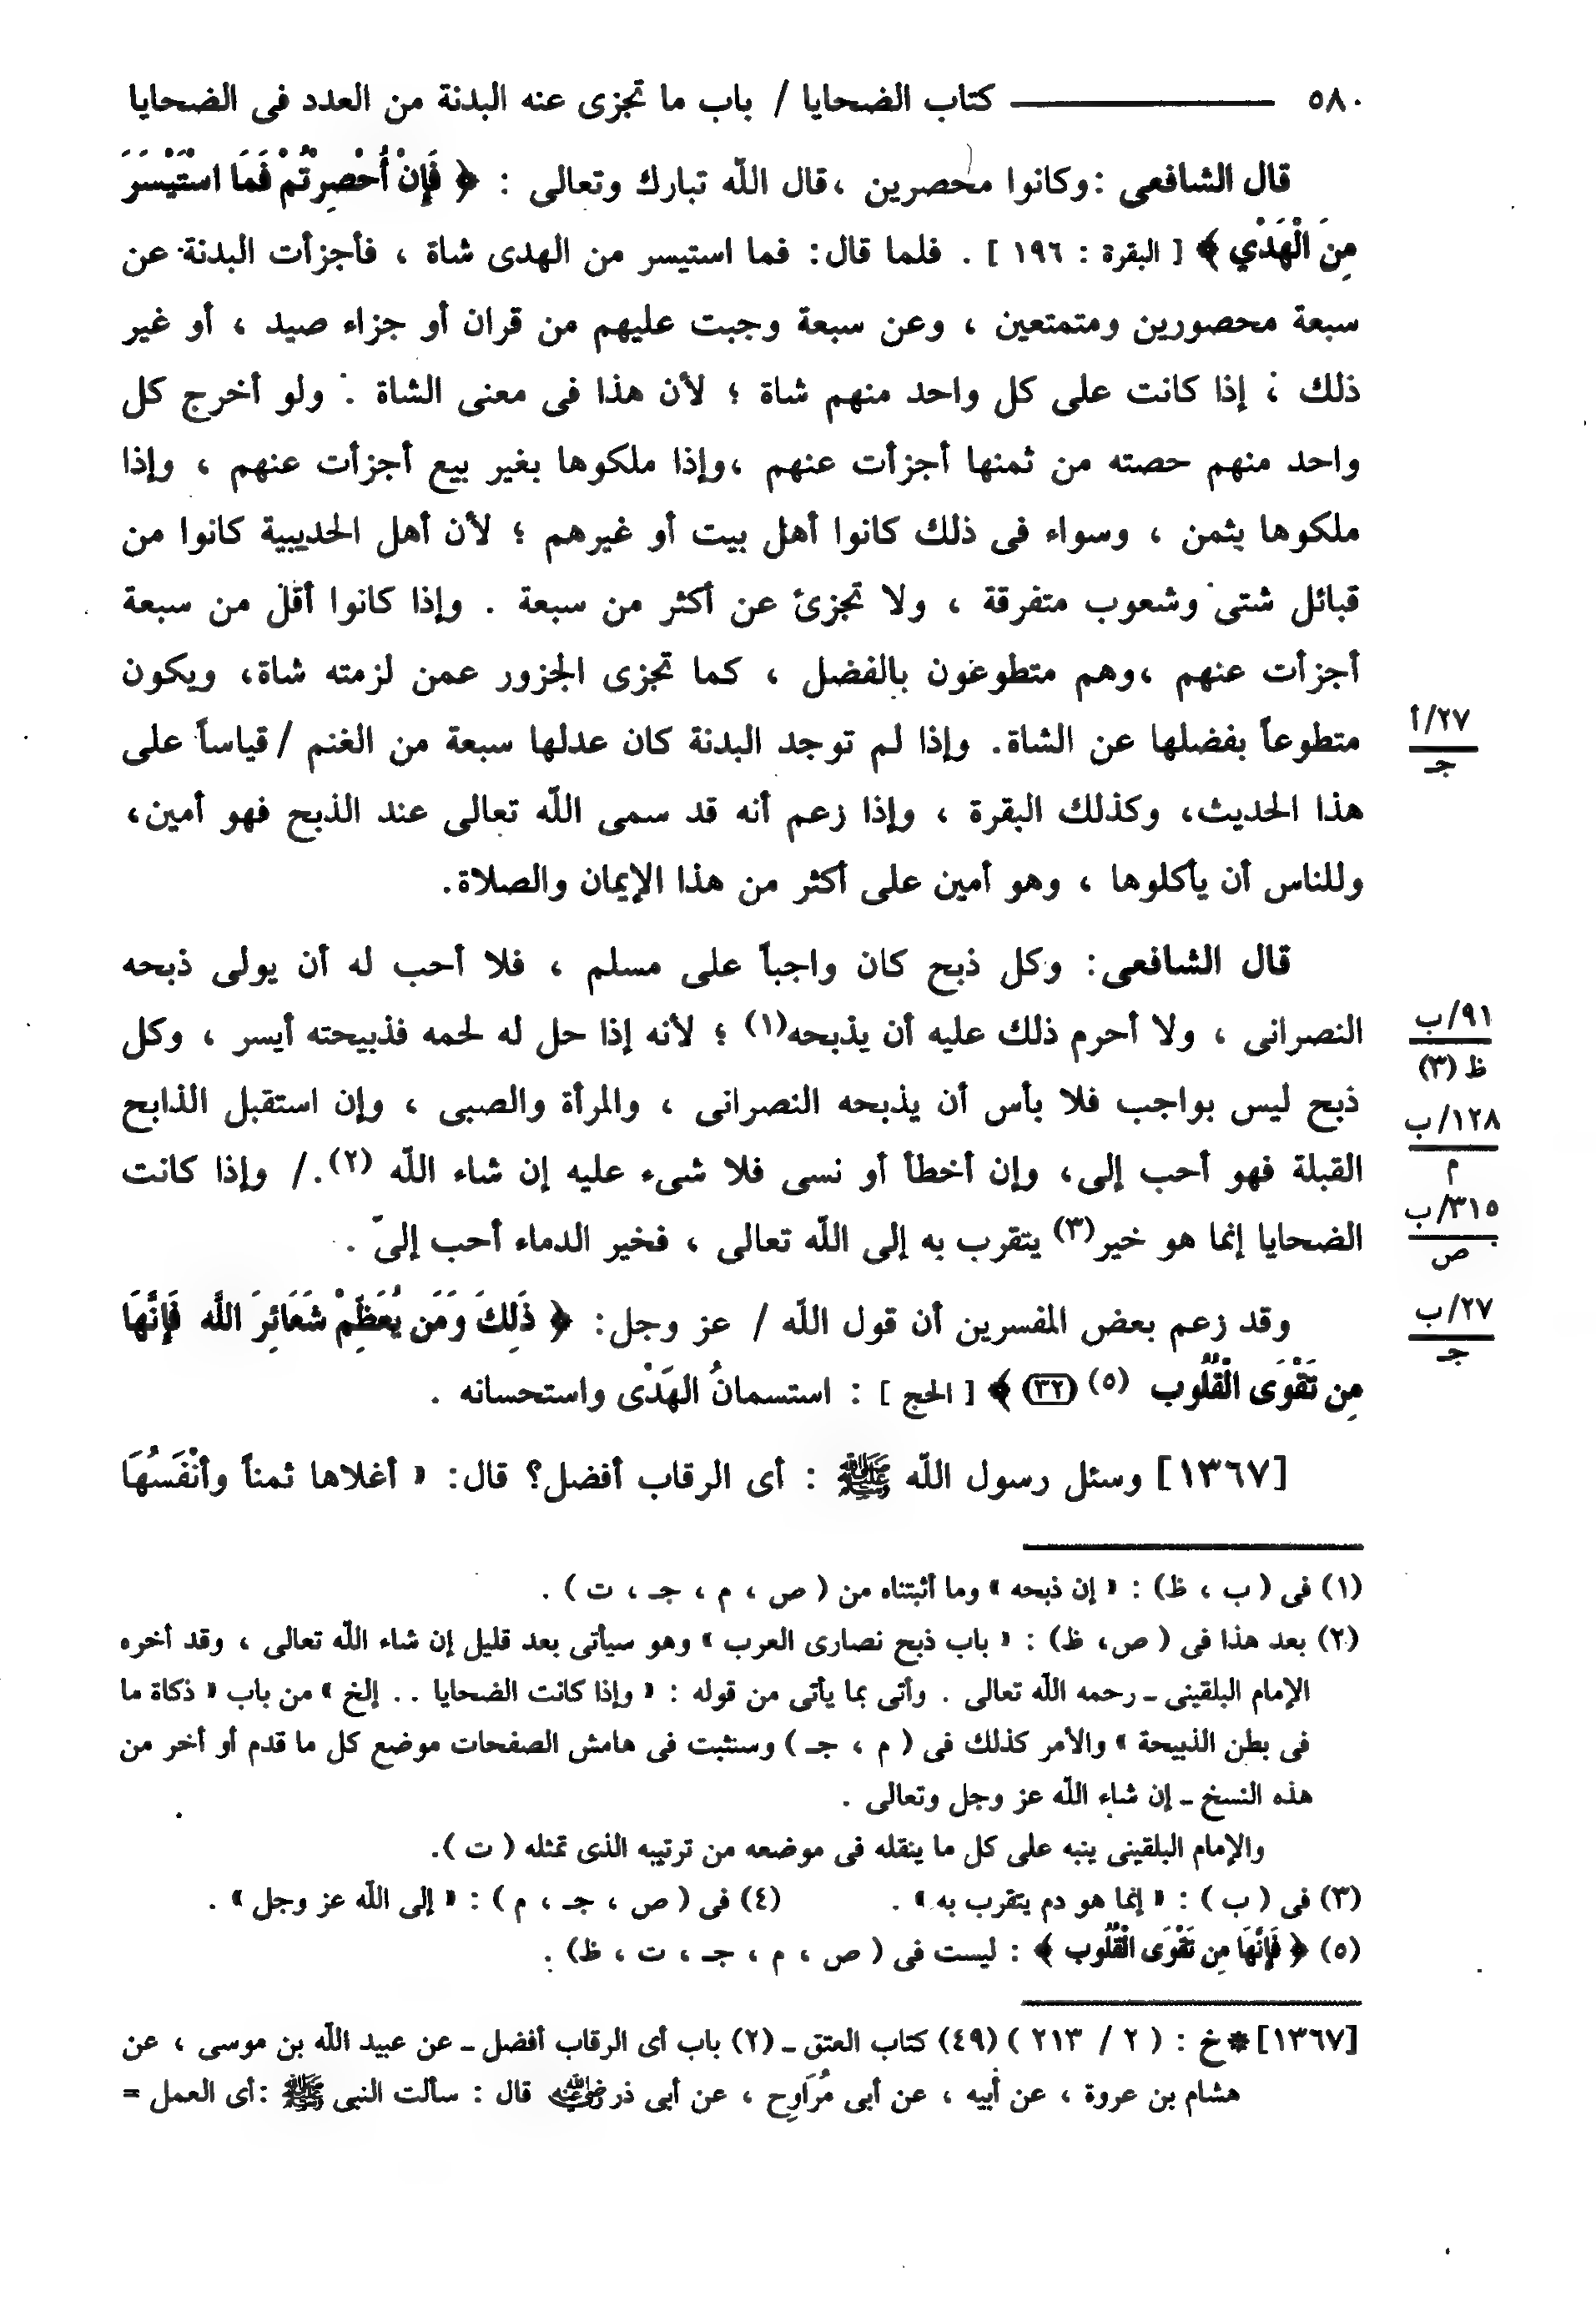 ٥٨٠ ــــــ كتاب الضحايا / باب ما تجزى عنه البدنة من العدد فى الضحايا
قال الشافعى : وكانوا محصرين ، قال اللّه تبارك وتعالى : ﴿ فَإِنْ أُحْصِرْتُمْ فَمَا اسْتَيْسَرَ
مِنَ الْهَدْيِ ﴾ [ البقرة : ١٩٦ ] . فلما قال: فما استيسر من الهدى شاة ، فأجزأت البدنة عن
سبعة محصورين ومتمتعين ، وعن سبعة وجبت عليهم من قران أو جزاء صيد ، أو غير
ذلك ؛ إذا كانت على كل واحد منهم شاة ؛ لأن هذا فى معنى الشاة . ولو أخرج كل
واحد منهم حصته من ثمنها أجزأت عنهم ،وإذا ملكوها بغير بيع أجزأت عنهم ، وإذا
ملكوها بثمن ، وسواء فى ذلك كانوا أهل بيت أو غيرهم ؛ لأن أهل الحديبية كانوا من
قبائل شتى وشعوب متفرقة ، ولا تجزئ عن أكثر من سبعة . وإذا كانوا أقل من سبعة
أجزأت عنهم ،وهم متطوعون بالفضل ، كما تجزى الجزور عمن لزمته شاة، ويكون
متطوعاً بفضلها عن الشاة. وإذا لم توجد البدنة كان عدلها سبعة من الغنم / قياساً على
٢٧/أ
جـ
هذا الحديث، وكذلك البقرة ، وإذا زعم أنه قد سمى اللّه تعالى عند الذبح فهو أمين،
وللناس أن يأكلوها ، وهو أمين على أكثر من هذا الإيمان والصلاة.
قال الشافعى: وكل ذبح كان واجباً على مسلم ، فلا أحب له أن يولى ذبحه
النصرانى ، ولا أحرم ذلك عليه أن يذبحه(١) ؛ لأنه إذا حل له لحمه فذبيحته أيسر ، وكل
٩١/ب
ظ (٣)
ذبح ليس بواجب فلا بأس أن يذبحه النصرانى ، والمرأة والصبى ، وإن استقبل الذابح
١٢٨/ب
م
القبلة فهو أحب إلى، وإن أخطأ أو نسى فلا شىء عليه إن شاء اللّه (٢)./ وإذا كانت
٣١٥/ب
ص
الضحايا إنما هو خير(٣) يتقرب به إلى اللّه تعالى ، فخير الدماء أحب إلىّ .
وقد زعم بعض المفسرين أن قول اللّه / عز وجل: ﴿ ذَلِكَ وَمَن يُعَظِّمْ شَعَائِرَ اللَّه فَإِنَّهَا
٢٧/ب
جـ
مِن تَقْوَى الْقُلُوب (٥) (٣٢) ﴾ [ الحج ] : استسمانُ الهَدْى واستحسانه .
[١٣٦٧] وسئل رسول اللّه ﷺ : أى الرقاب أفضل؟ قال: « أغلاها ثمناً وأنْفَسُهَا
(١) فى ( ب ، ظ) : « إن ذبحه » وما أثبتناه من ( ص ، م ، جـ ، ت ) .
(٢) بعد هذا فى ( ص، ظ) : « باب ذبح نصارى العرب » وهو سيأتى بعد قليل إن شاء اللّه تعالى ، وقد أخره
الإمام البلقينى ـ رحمه اللّه تعالى . وأتى بما يأتى من قوله : « وإذا كانت الضحايا .. إلخ » من باب « ذكاة ما
فى بطن الذبيحة » والأمر كذلك فى ( م ، جـ ) وسنثبت فى هامش الصفحات موضع كل ما قدم أو أخر من
هذه النسخ ـ إن شاء اللّه عز وجل وتعالى .
والإمام البلقينى ينبه على كل ما ينقله فى موضعه من ترتيبه الذى تمثله ( ت ).
(٣) فى ( ب ) : « إنما هو دم يتقرب به » . (٤) فى ( ص ، جـ ، م ) : « إلى اللّه عز وجل » .
(٥) ﴿ فَإِنَّهَا مِن تَقْوَى الْقُلُوب ﴾ : ليست فى ( ص ، م ، جـ ، ت ، ظ) .
[١٣٦٧]* خ : ( ٢ / ٢١٣ ) (٤٩) كتاب العتق ـ (٢) باب أى الرقاب أفضل ـ عن عبيد اللّه بن موسى ، عن
هشام بن عروة ، عن أبيه ، عن أبى مُرَاوِح ، عن أبى ذر رضي الله عنه قال : سألت النبى ﷺ :أى العمل =